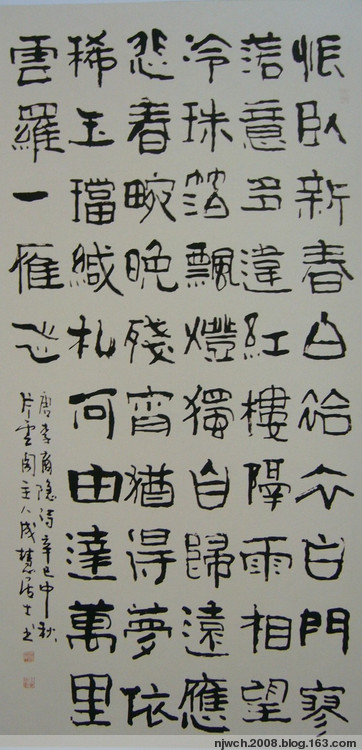 悵臥新春白袷衣白門寥
落意多違紅樓隔雨相望
冷珠箔飄燈獨自歸遠應
悲春畹晚殘宵猶得夢依
稀玉璫緘札何由達萬里
雲羅一雁飛
唐李商隐詩辛巳中秋
片雲閣主人成慧居士书
njwch.2008.blog.163.com